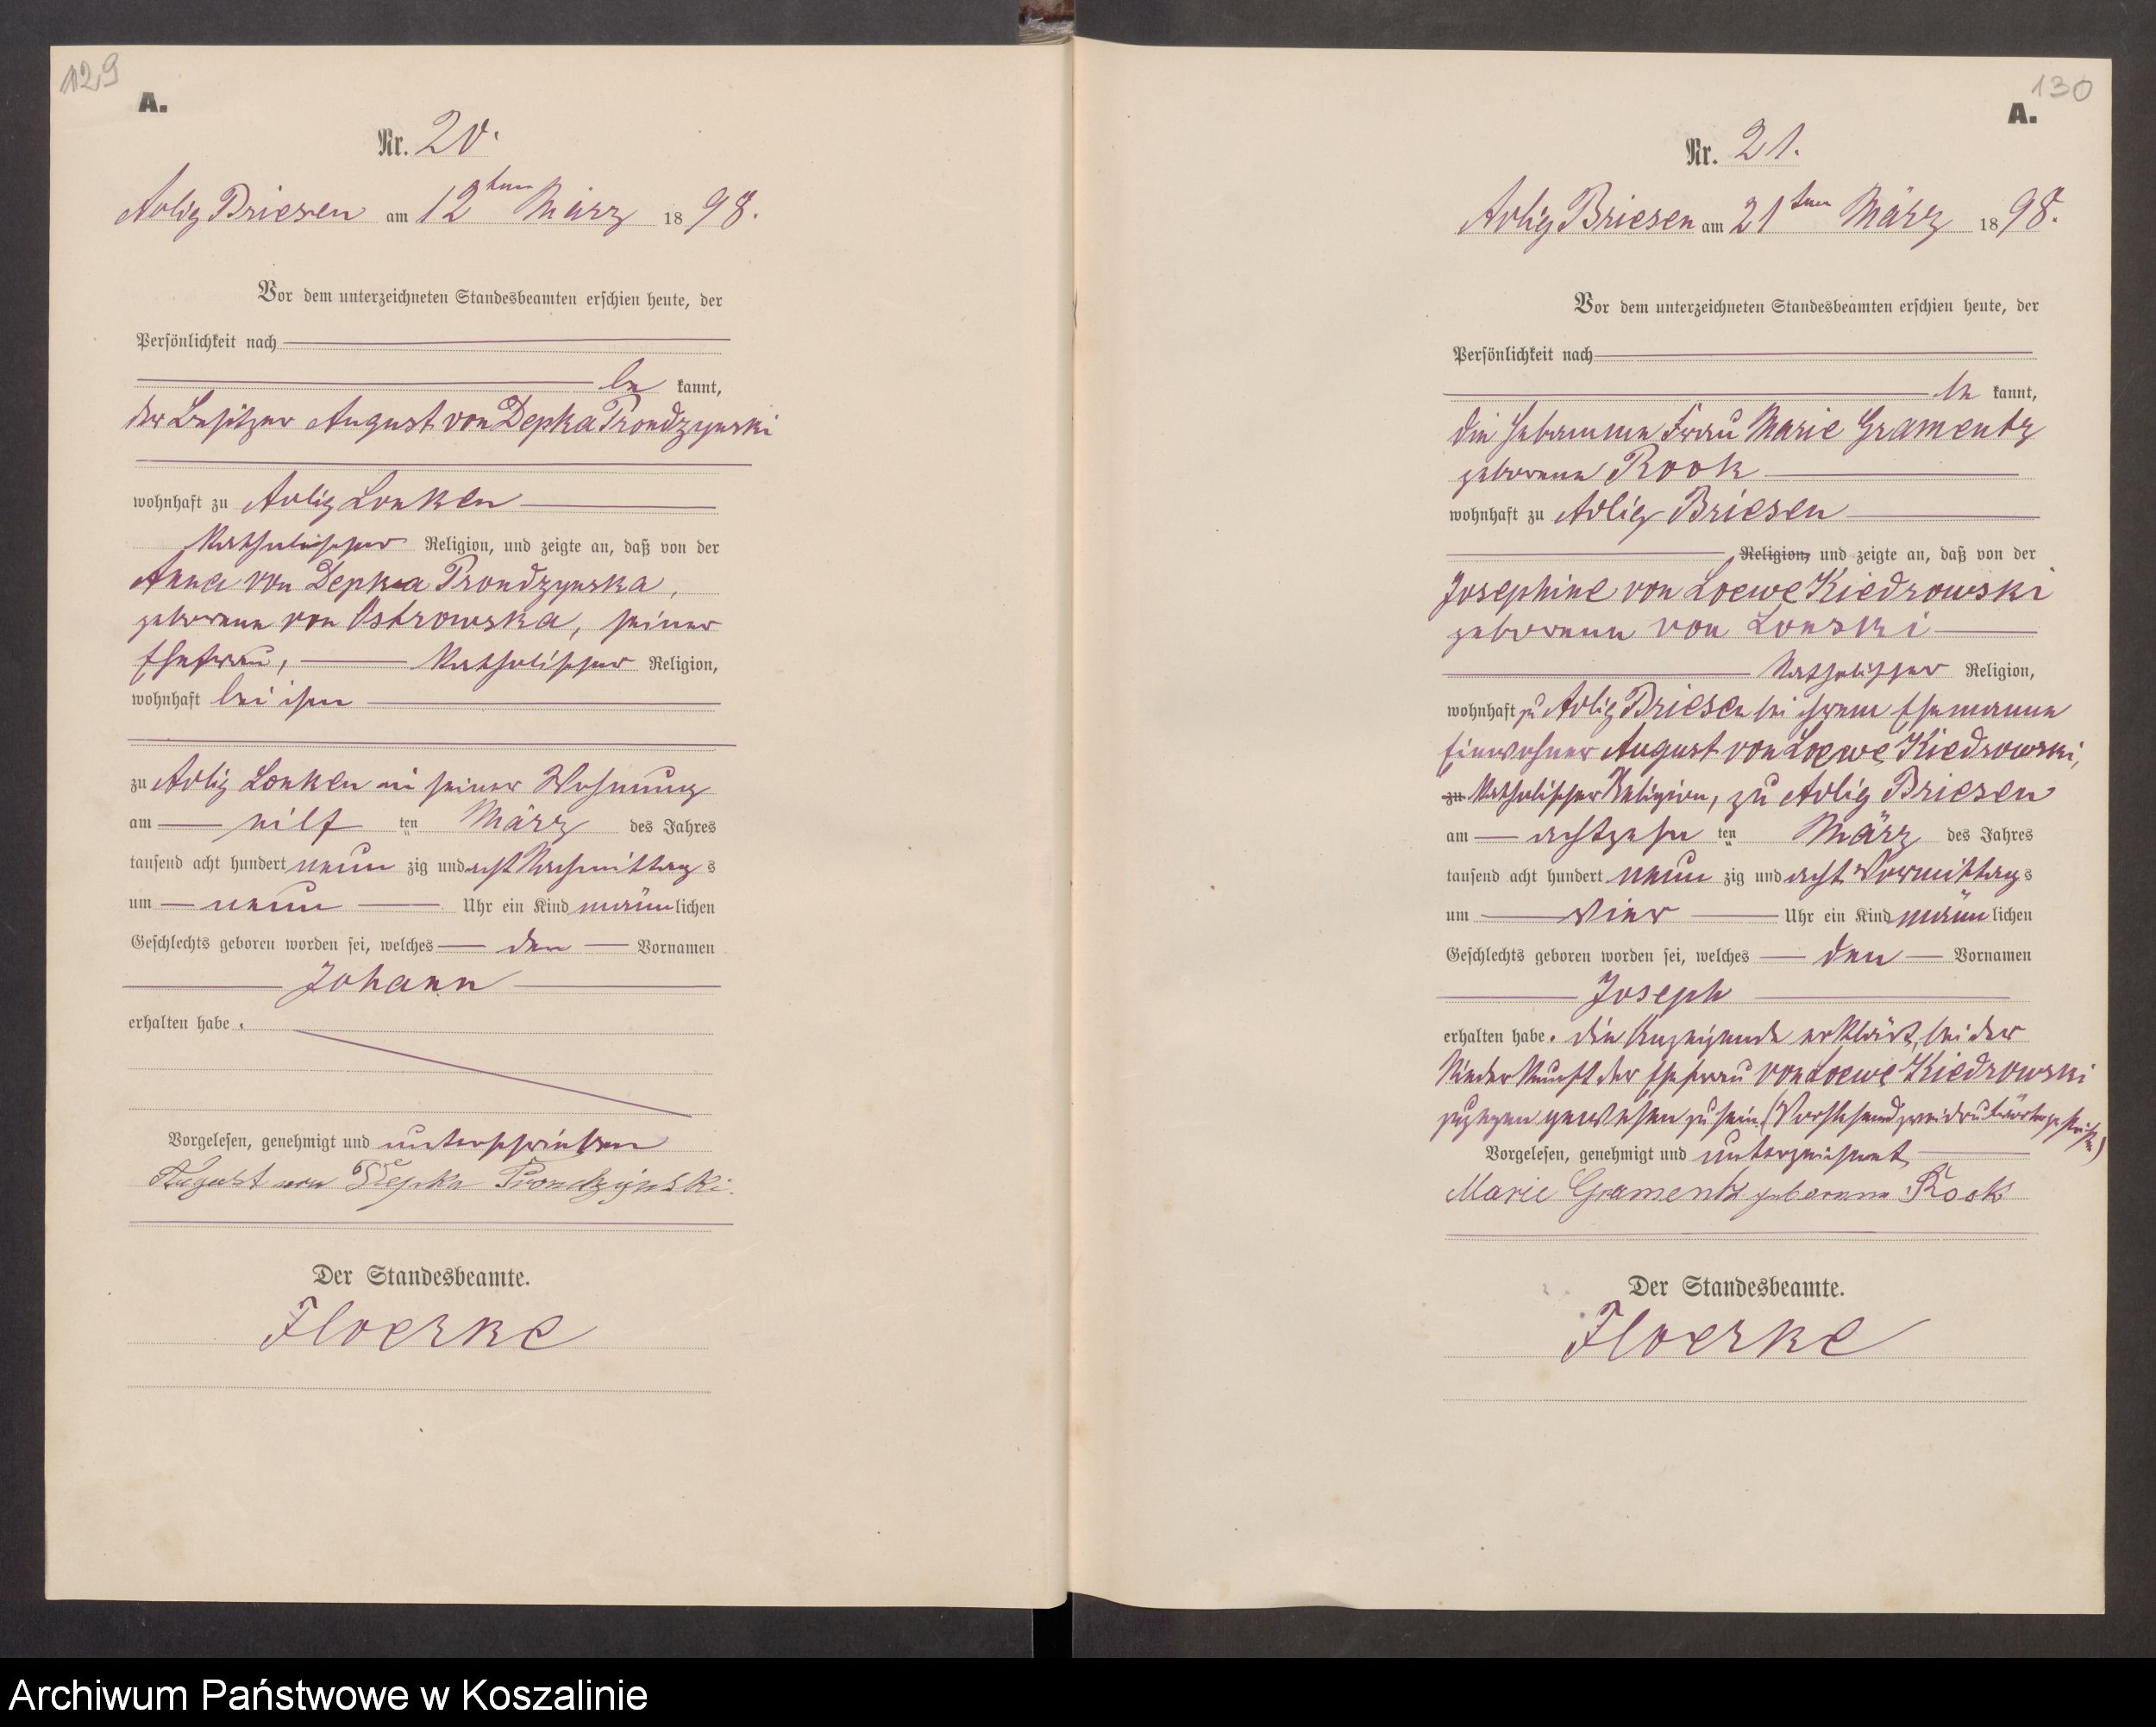 129
A.
Nr. 20.
Adlig Briesen am 12ten März 1898.
Vor dem unterzeichneten Standesbeamten erschien heute, der
Persönlichkeit nach
be kannt,
der Besitzer August von Depka Prondzynski
wohnhaft zu Adlig Lonken
katholischer Religion, und zeigte an, daß von der
Anna von Depka Prondzynska,
geborenen von Ostrowska, seiner
Ehefrau, katholischer Religion,
wohnhaft bei ihm
zu Adlig Lonken in seiner Wohnung
am eilf ten März des Jahres
tausend acht hundert neun zig und acht Nachmittags
um neun Uhr ein Kind männlichen
Geschlechts geboren worden sei, welches den Vornamen
Johann
erhalten habe.
Vorgelesen, genehmigt und unterschrieben
August von Depka Prondzynski.
Der Standesbeamte.
Floerke
130
A.
Nr. 21.
Adlig Briesen am 21ten März 1898.
Vor dem unterzeichneten Standesbeamten erschien heute, der
Persönlichkeit nach
be kannt,
die Hebamme Frau Marie Gramentz
geborene Rook
wohnhaft zu Adlig Briesen
Religion, und zeigte an, daß von der
Josephine von Loewe Kiedrowski
geborenen von Lonski
katholischer Religion,
wohnhaft zu Adlig Briesen bei ihrem Ehemanne
Einwohner August von Loewe Kiedrowski,
zu katholischer Religion, zu Adlig Briesen
am achtzehn ten März des Jahres
tausend acht hundert neun zig und acht Vormittags
um vier Uhr ein Kind männlichen
Geschlechts geboren worden sei, welches den Vornamen
Joseph
erhalten habe. Die Anzeigende erklärt, bei der
Niederkunft der Ehefrau von Loewe Kiedrowski
zugegen gewesen zu sein. (Vorstehend zwei Druckwörter gestrichen)
Vorgelesen, genehmigt und unterzeichnet
Marie Gramentz geborene Rook
Der Standesbeamte.
Floerke
Archiwum Państwowe w Koszalinie